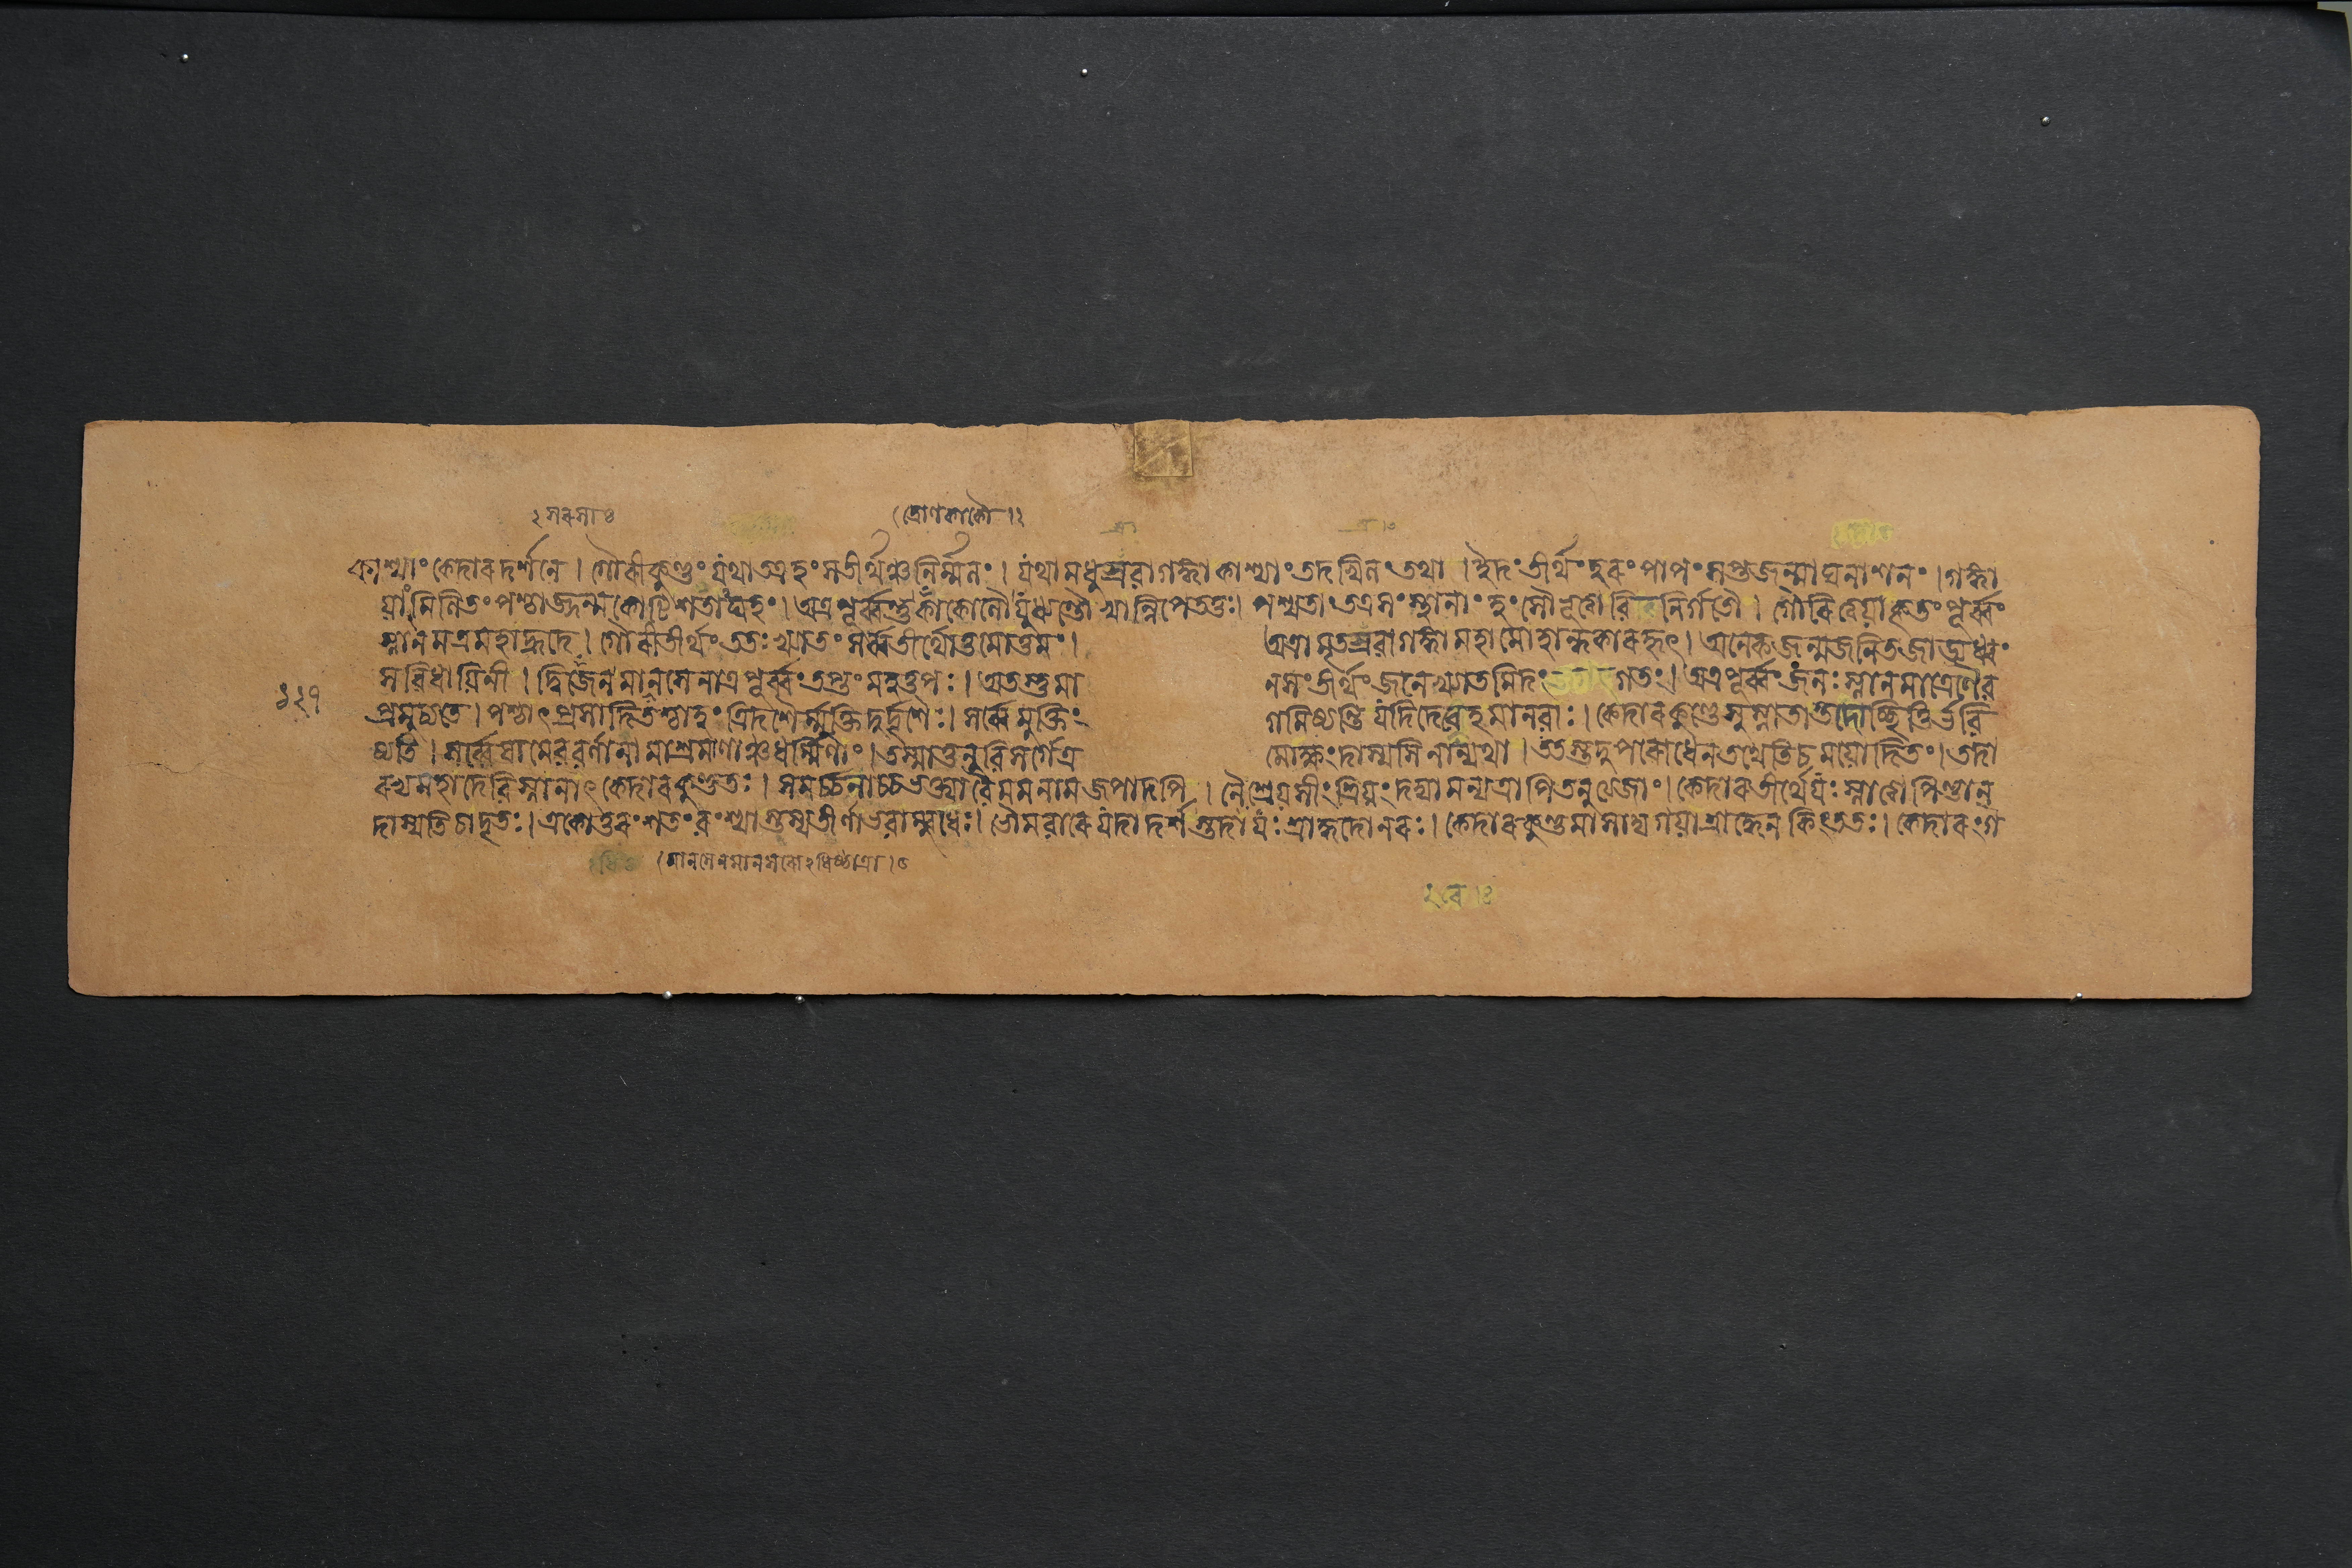 (দ্রোণকাকৌ ।২
কাশ্যাং কেদারদর্শনে । গৌরীকুণ্ডং যথা তত্র হংসতীর্থঞ্চ নির্ম্মলং । যথা মধুস্রবা গঙ্গা কাশ্যাং তদখিলং তথা । তীর্থং হরং পাপং সপ্তজন্মাঘনাশনং । গঙ্গা
য়াং মিলিতং পশ্চাজ্জন্মকোটিশতাঘহং । অত্র পূর্ব্বন্তু কাকোলৌ যুধ্যন্তৌ খান্নিপেততুঃ। পশ্যতাং তত্রসংস্থানাং হংসৌ ভূত্বা বিনির্গতৌ । গৌরি ত্বয়া কৃতং পূর্ব্বং
স্নানমত্র মহাহ্রদে । গৌরীতীর্থং ততঃ খ্যাতং সর্ব্বতীর্থোত্তমোত্তমং । অত্রামৃতস্রবা গঙ্গা মহামোহান্ধকারহৃৎ । অনেকজন্মজনিতজাড্যধ্বং
সবিধায়িনী । দ্বিজেন মানসেনাত্র পূর্ব্বং তপ্তং মহত্তপঃ । অতস্তু মা নসং তীর্থং জনে খ্যাতমিদং গতঃ । অত্র পূর্ব্বং জনঃ স্নানমাত্রেণৈব
প্রমুচ্যতে । পশ্চাৎ প্রসাদিতশ্চাহং ত্রিদশৈর্ম্মুক্তিদুর্দৃশৈঃ । সর্ব্বে মুক্তিং গমিষ্যন্তি যদি দেবেহ মানবাঃ । কেদারকুণ্ডে সুস্নাতাস্তদোচ্ছিত্তির্ভবি
ষ্যতি । সর্ব্বেষামেব বর্ণানামাশ্রমাণাঞ্চ ধর্ম্মিণাং । তস্মাত্তনুবিসর্গেত্র মোক্ষং দাস্যসি নান্যথা । ততস্তদুপরোধেন তথেতি চ ময়োদিতং । তদা
রভ্য মহাদেবি স্নানাৎ কেদারকুণ্ডতঃ । সমর্চ্চনাচ্চ ভক্ত্যা বৈ মম নামজপাদপি । নৈঃশ্রেয়সীং শ্রিয়ং দদ্যামন্যত্রাপি তনুত্যজাং । কেদারতীর্থে যঃ স্নাত্বা পিণ্ডান্
দাস্যতি চাদৃতঃ । একোত্তরং শতং বংশ্যাস্তস্য তীর্ণা ভবাম্বুধেঃ । ভৌমবারে যদা দর্শস্তদা যঃ শ্রাদ্ধদো নরঃ । কেদারকুণ্ডমাসাদ্য গয়াশ্রাদ্ধেন কিং ততঃ । কেদারং গ